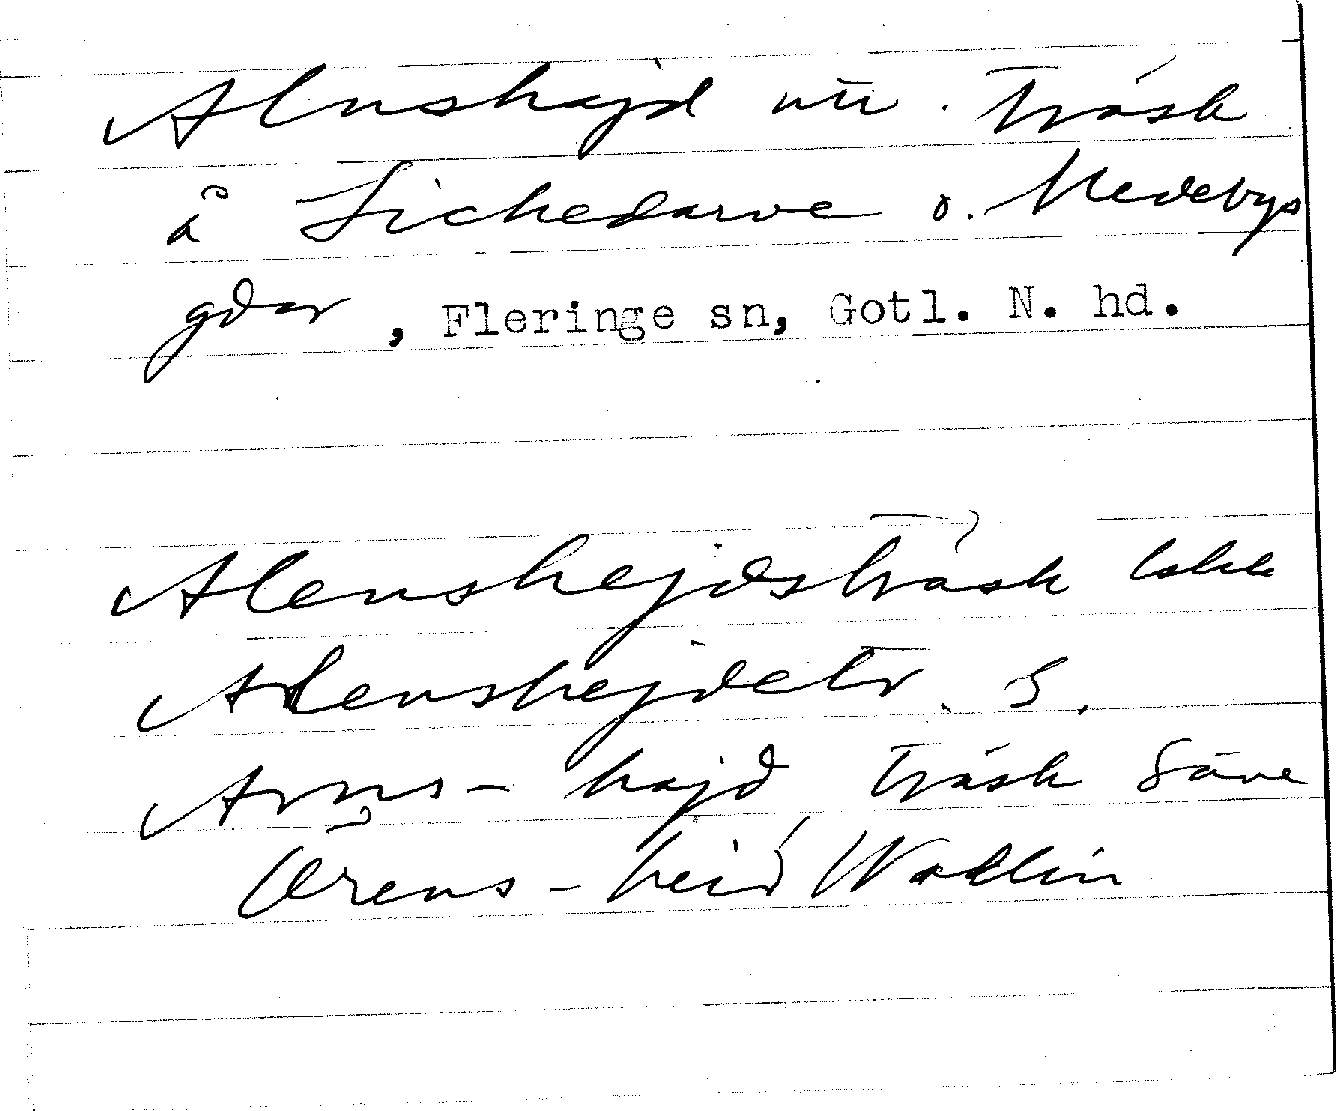 Alnshajd utr. Träsk
å Sichedarve o. Medebys
gdar, Fleringe sn, Gotl. N. hd.
Alenshejdsträsk
Alenshejdetr. S.
Arns- hajd träsk Säve
Ørens- heid Wallin